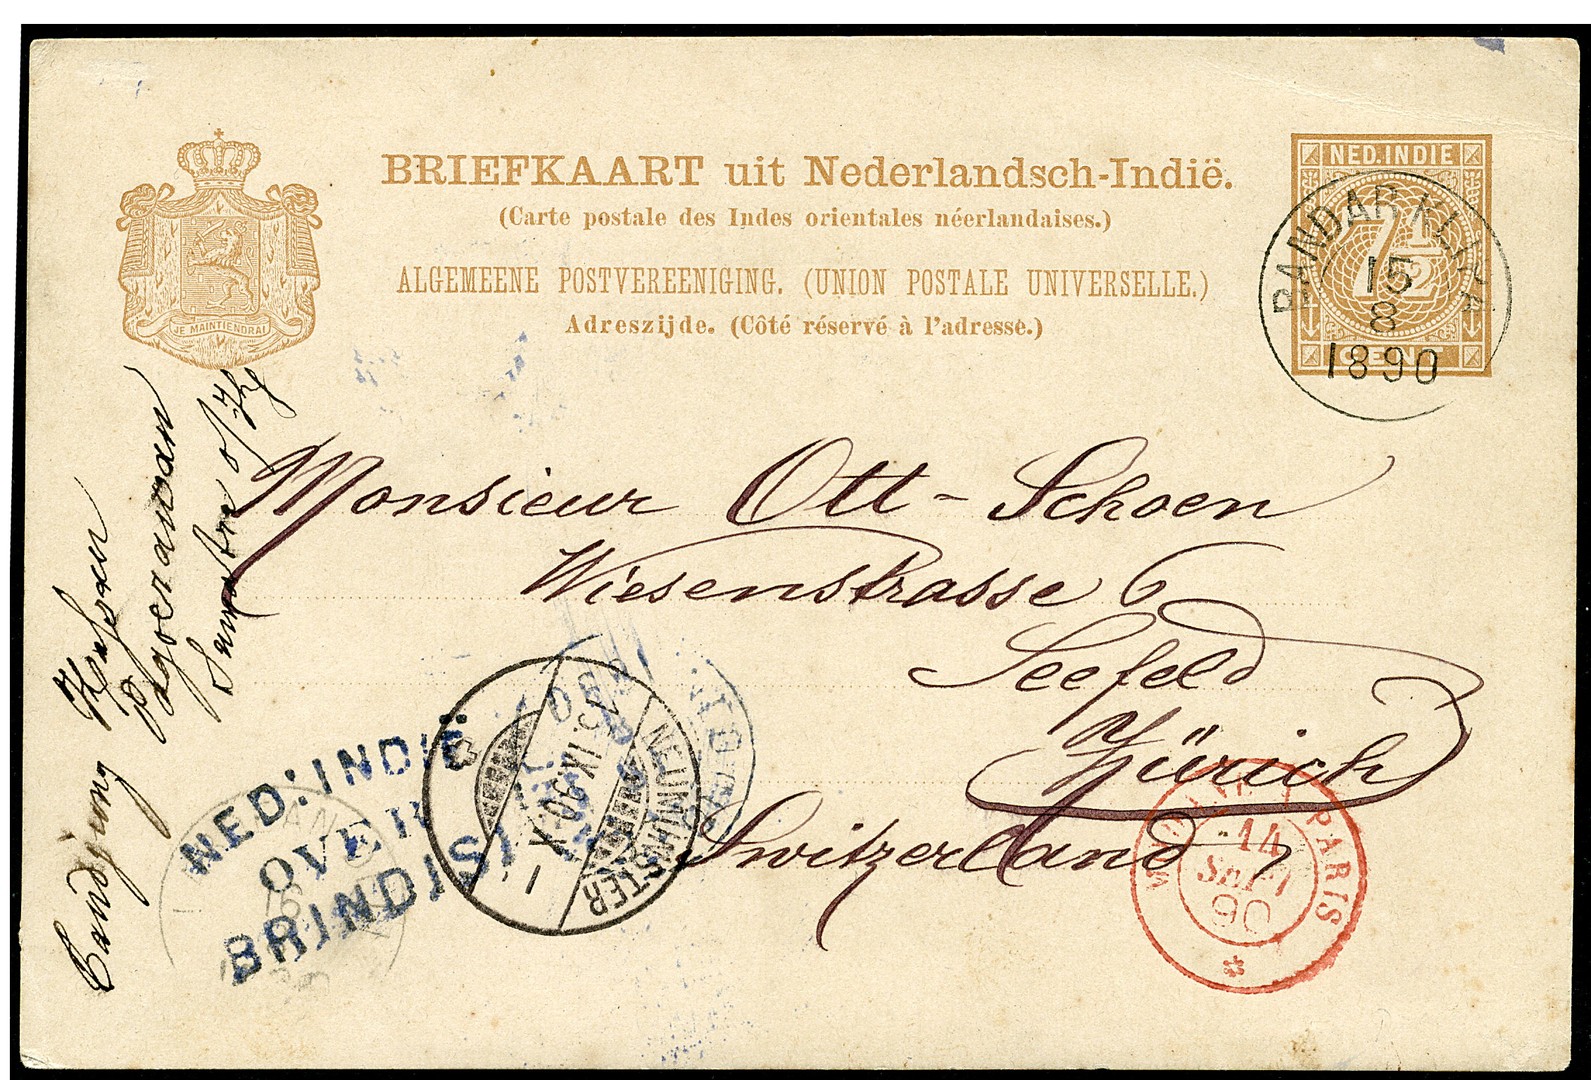 BRIEFKAART uit Nederlandsch-Indië.
(Carte postale des Indes orientales néerlandaises.)
ALGEMEENE POSTVEREENIGING. (UNION POSTALE UNIVERSELLE.)
Adreszijde. (Côté réservé à l'adresse.)
JE MAINTIENDRAI
NED. INDIE
7½
CENT
BANDAR KLIPA
15
8
1890
Monsieur Ott-Schoen
Wiesenstrasse 6
Seefeld
Zürich
Switzerland
Sumatra o/K
NED: INDIË
OVER
BRINDISI
NEUMÜNSTER
3. IX. 90. X
PARIS
14
SEPT
90